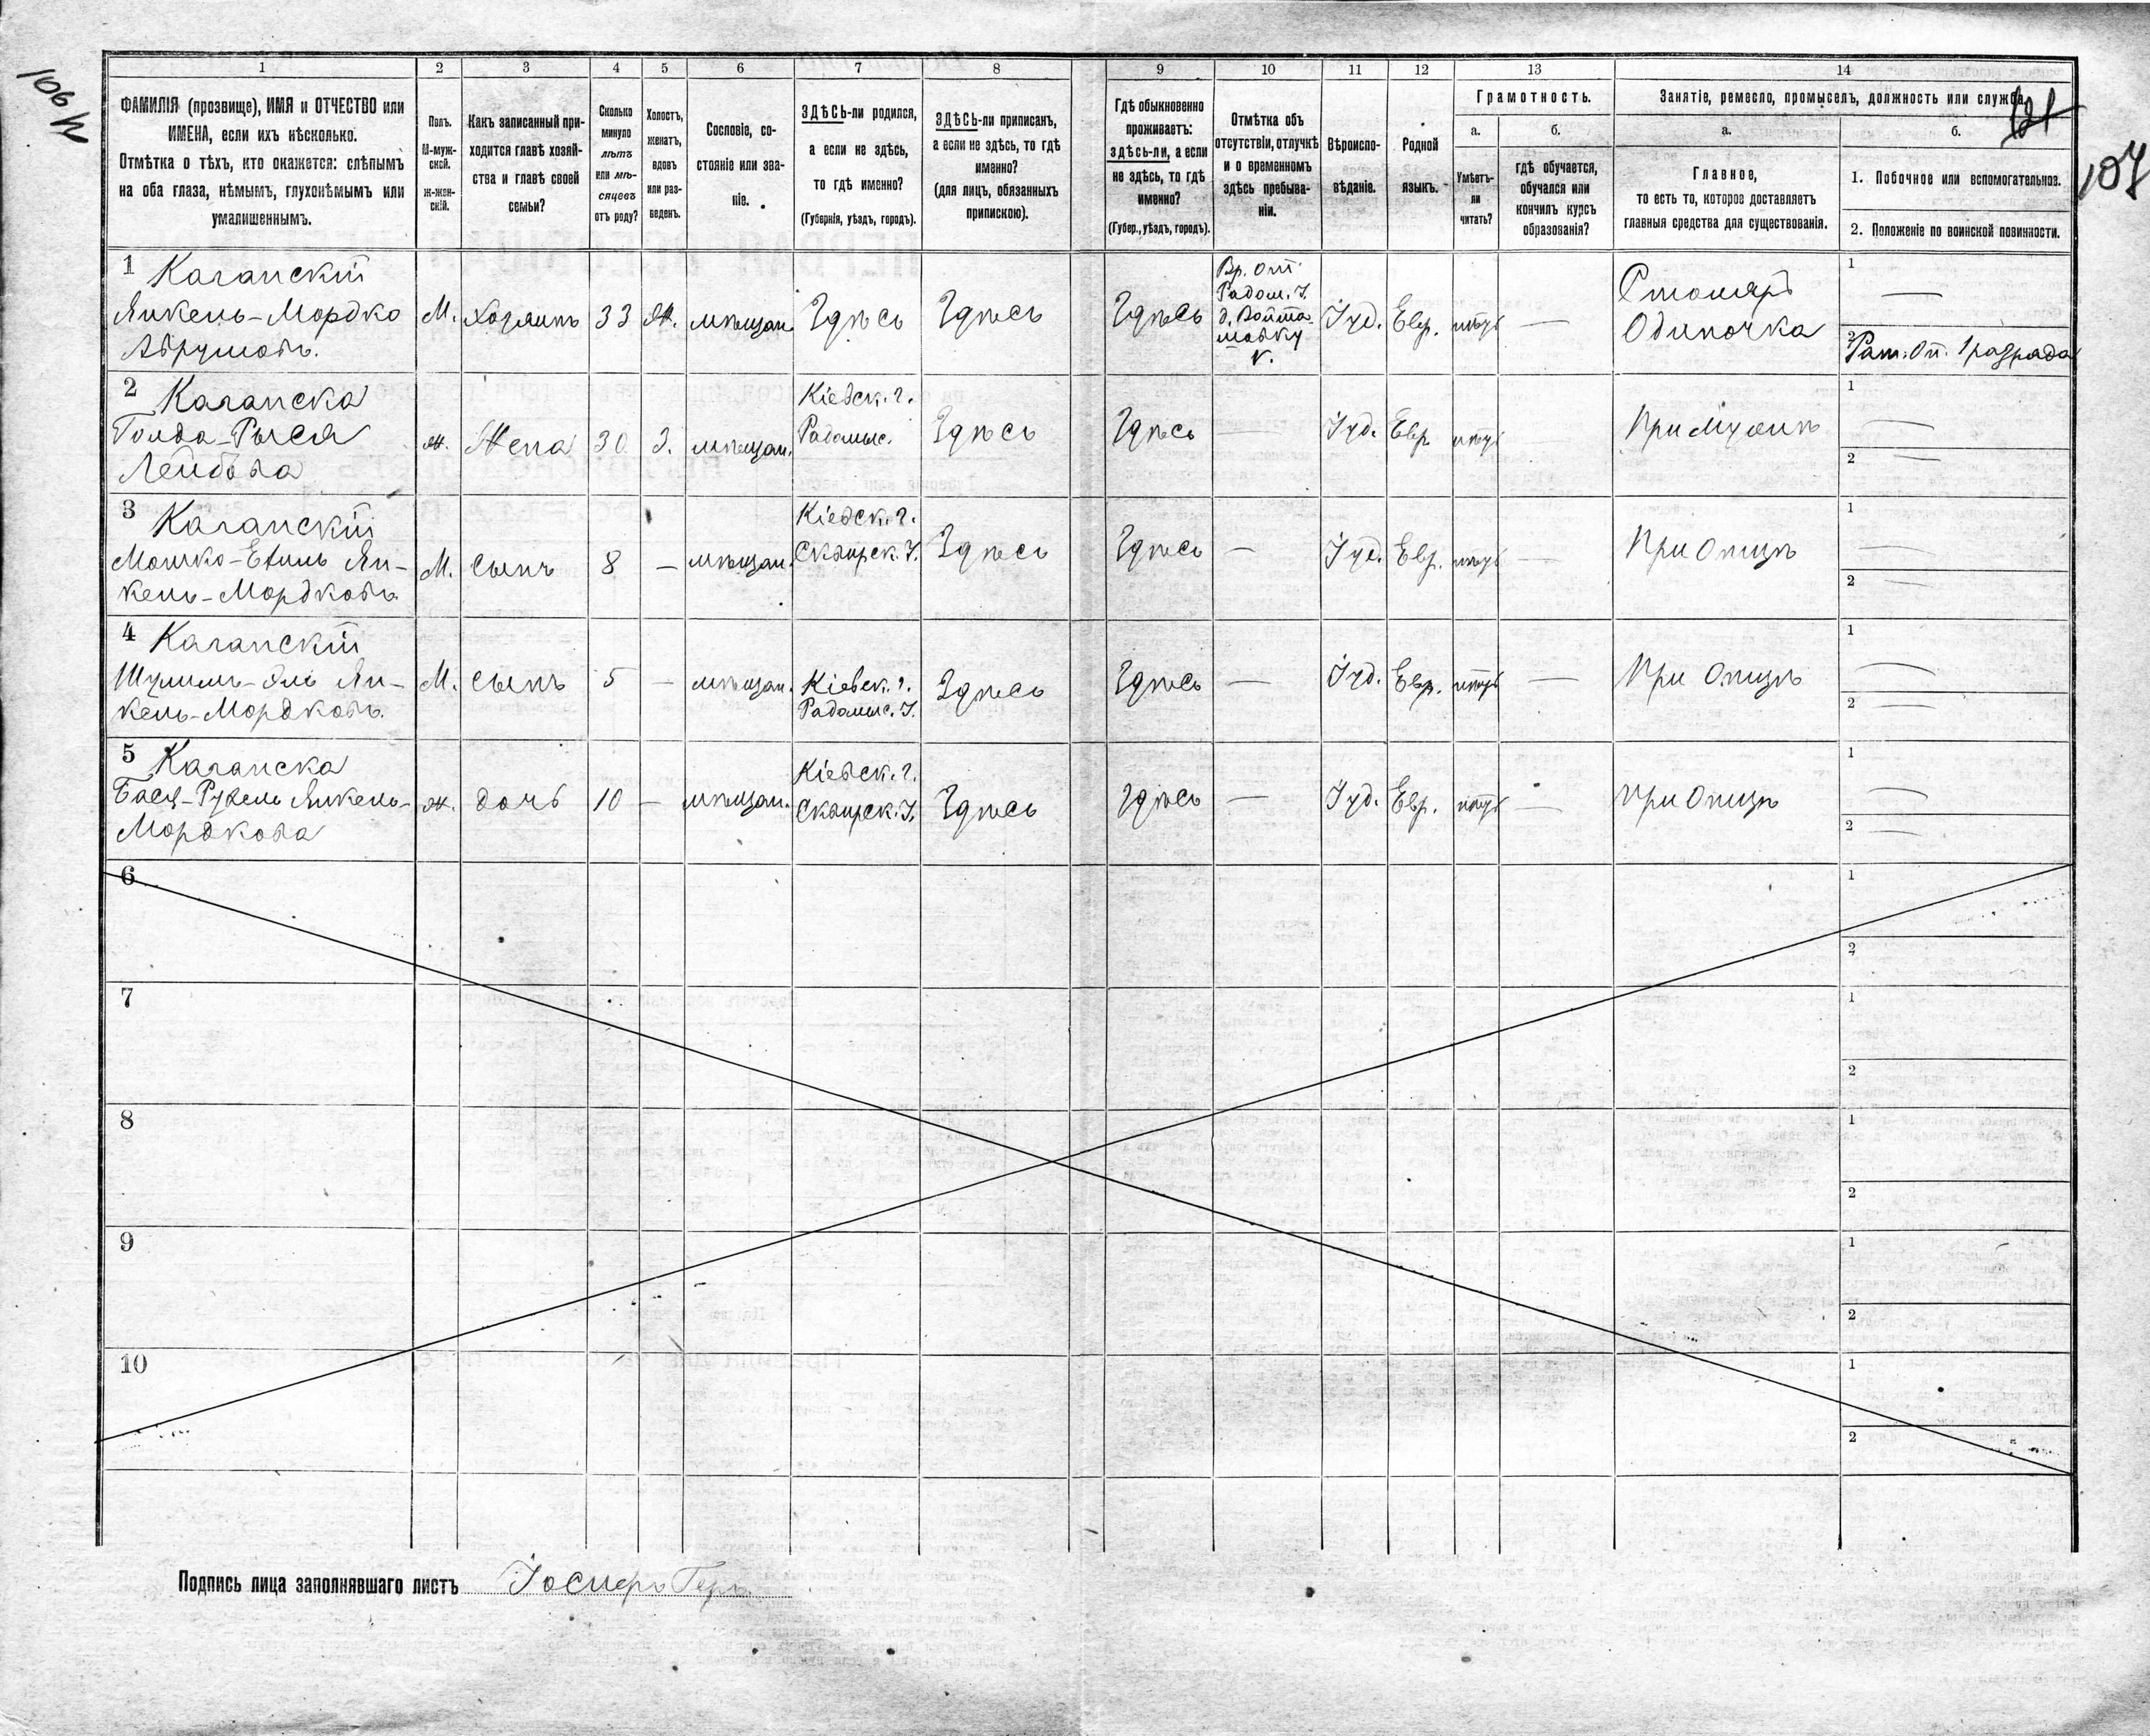 106
107
1
2
3
4
5
6
7
8
9
10
11
12
13
14
ФАМИЛІЯ (прозвище), ИМЯ и ОТЧЕСТВО или
ИМЕНА, если ихъ нѣсколько.
Отмѣтка о тѣхъ, кто окажется: слѣпымъ
на оба глаза, нѣмымъ, глухонѣмымъ или
умалишеннымъ.
Полъ.
М-муж-
ской.
Ж-жен-
скій.
Какъ записанный при-
ходится главѣ хозяй-
ства и главѣ своей
семьи?
Сколько
минуло
лѣтъ
или мѣ-
сяцевъ
отъ роду?
Холостъ,
женатъ,
вдовъ
или раз-
веденъ.
Сословіе, со-
стояніе или зва-
ніе.
ЗДѢСЬ-ли родился,
а если не здѣсь,
то гдѣ именно?
(Губернія, уѣздъ, городъ).
ЗДѢСЬ-ли приписанъ,
а если не здѣсь, то гдѣ
именно?
(для лицъ, обязанныхъ
припискою).
Гдѣ обыкновенно
проживаетъ:
здѣсь-ли, а если
не здѣсь, то гдѣ
именно?
(Губер., уѣздъ, городъ).
Отмѣтка объ
отсутствіи, отлучкѣ
и о временномъ
здѣсь пребыва-
ніи.
Вѣроиспо-
вѣданіе.
Родной
языкъ.
Грамотность.
а.
Умѣетъ-
ли
читать?
б.
гдѣ обучается,
обучался или
кончилъ курсъ
образованія?
Занятіе, ремесло, промыселъ, должность или служба.
а.
Главное,
то есть то, которое доставляетъ
главныя средства для существованія.
б.
1. Побочное или вспомогательное.
2. Положеніе по воинской повинности.
1 Каганскій
Янкель-Мордко
Аврумовъ.
М.
Хозяинъ
33
Ж.
мѣщан.
Здѣсь
Здѣсь
Здѣсь
Вр. от.
Радом. У.
Іуд.
Евр.
нѣтъ
—
Столяръ
Одиночка
1 —
2 Рат. Оп. 1 разряда
2 Каганска
Голда-Рыся
Лейбова
ж.
Жена
30
З.
мѣщан.
Кіевск. г.
Радомыс.
Здѣсь
Здѣсь
—
Іуд.
Евр
нѣтъ
При Мужѣ
1 —
2 —
3 Каганскій
Мошко- Ян-
кель-Мордковъ
М.
Сынъ
8
—
мѣщан.
Кіевск. г.
Сквирск. У.
Здѣсь
Здѣсь
—
Іуд.
Евр.
нѣтъ
—
При Отцѣ
1 —
2 —
4 Каганскій
Шулим-Эль Ян-
кель-Мордковъ.
М.
Сынъ
5
—
мѣщан.
Кіевск. г.
Радомыс. У.
Здѣсь
Здѣсь
—
Іуд.
Евр.
нѣтъ
—
При Отцѣ
1 —
2 —
5 Каганска
Бася-Рухель Янкель-
Мордкова
ж.
дочь
10
—
мѣщан.
Кіевск. г.
Сквирск. У.
Здѣсь
Здѣсь
—
Іуд.
Евр.
нѣтъ
—
при Отцѣ
1 —
2 —
6
1
2
7
1
2
8
1
2
9
1
2
10
1
2
Подпись лица заполнявшаго листъ